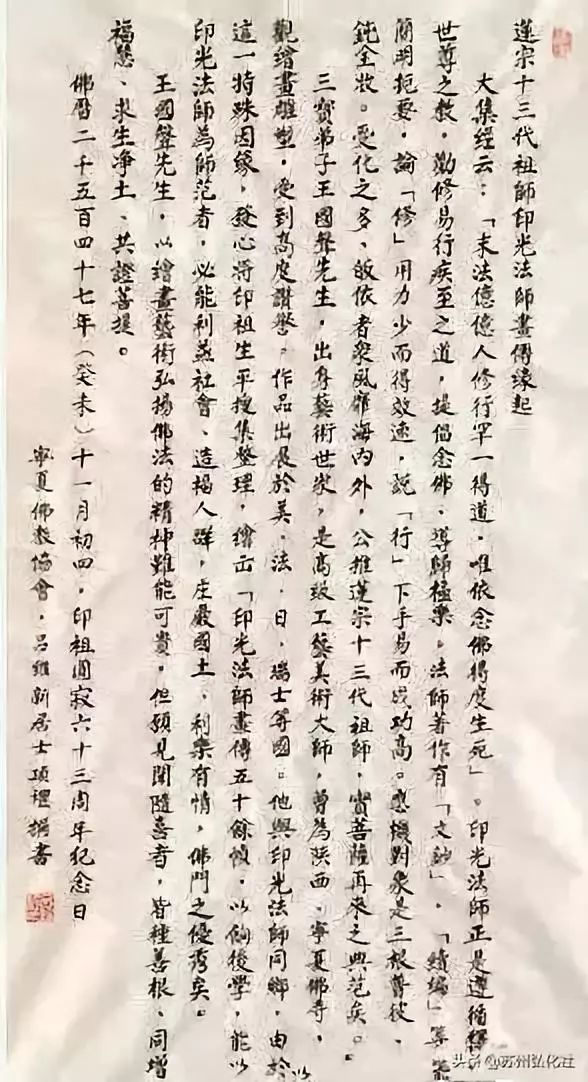 蓮宗十三代祖師印光法師畫傳緣起
大集經云：「末法億億人修行罕一得道，唯依念佛得度生死」。印光法師正是遵循釋
世尊之教，勸修易行疾至之道，提倡念佛、導歸極樂。法師著作有「文鈔」，「續編」等
簡明扼要，論「修」用力少而得效速，說「行」下手易而成功高。應機對象是三根普被、
鈍全收。受化之多、皈依者眾風靡海內外，公推蓮宗十三代祖師，實菩薩再來之典范矣。
三寶弟子王國聲先生，出身藝術世家，是高級工藝美術大師，曾為陝西、寧夏佛寺，
觀繪畫雕塑，受到高度讚譽。作品出展於英、法、日、瑞士等國。他與印光法師同鄉，由於
這一特殊因緣，發心將印祖生平搜集整理，繪出「印光法師畫傳五十餘幀，以餉後學，能以
印光法師為師范者，必能利益社會、造福人群，庄嚴國土、利樂有情，佛門之優秀矣。
王國聲先生，以繪畫藝術弘揚佛法的精神難能可貴。但願見聞隨喜者，皆種善根、同增
福慧、求生净土、共證菩提。
佛曆二千五百四十七年（癸未）十一月初四，印祖圓寂六十三周年紀念日
寧夏佛教協會，呂維新居士頂禮撰書
头条@苏州弘化社